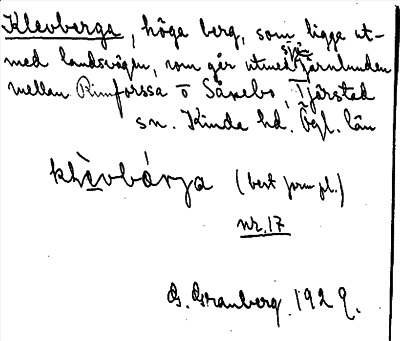 Klevberga, höga berg, som ligga ut-
med landsvägen, som går utmed sjön Järnlunden
mellan Rimforssa o Såxebo, Tjärstad
sn. Kinda hd. Ögl. län
klèvbárja (best form pl.)
nr. 17
G. Granberg. 1929.